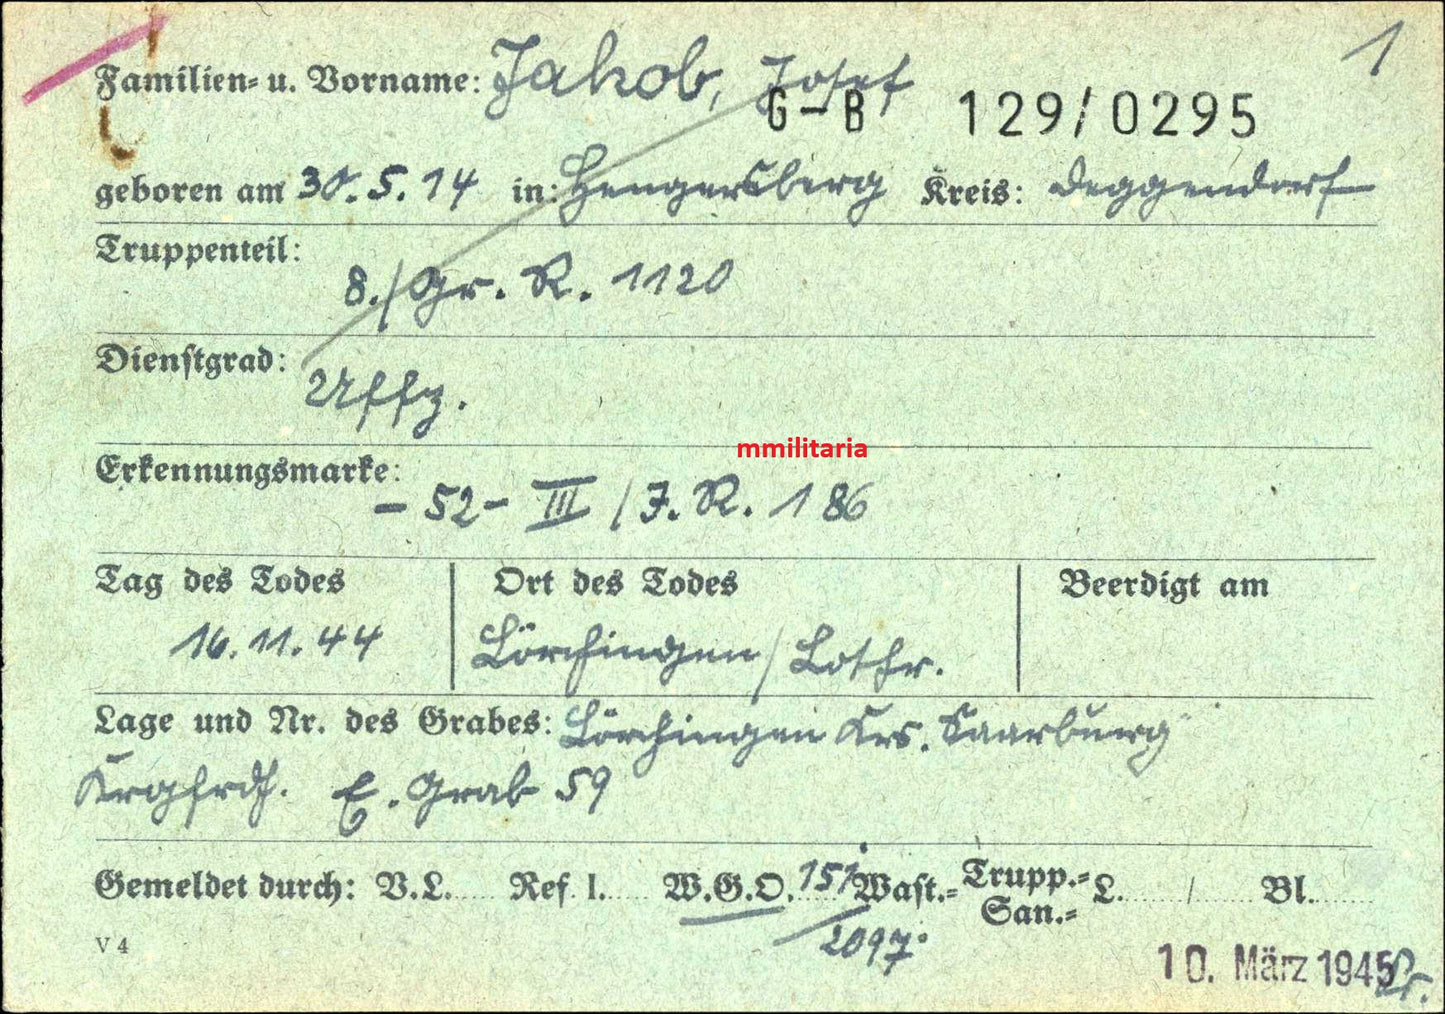 1
Familien- u. Vorname: Jakob, Josef
G-B 129/0295
geboren am 30.5.14 in: Hengersberg Kreis: Deggendorf
Truppenteil:
8./Gr. R. 1120
Dienstgrad:
Uffz.
mmilitaria
Erkennungsmarke:
- 52 - III / J. R. 186
Tag des Todes Ort des Todes Beerdigt am
16.11.44 Lörchingen / Lothr.
Lage und Nr. des Grabes: Lörchingen Krs. Saarburg
Krgfrdf. E. Grab 59
Gemeldet durch: V.L. Ref. I. W.G.O. 151 Wast.= Trupp.= L. / Bl.
San.=
/2097
V 4
10. März 1945